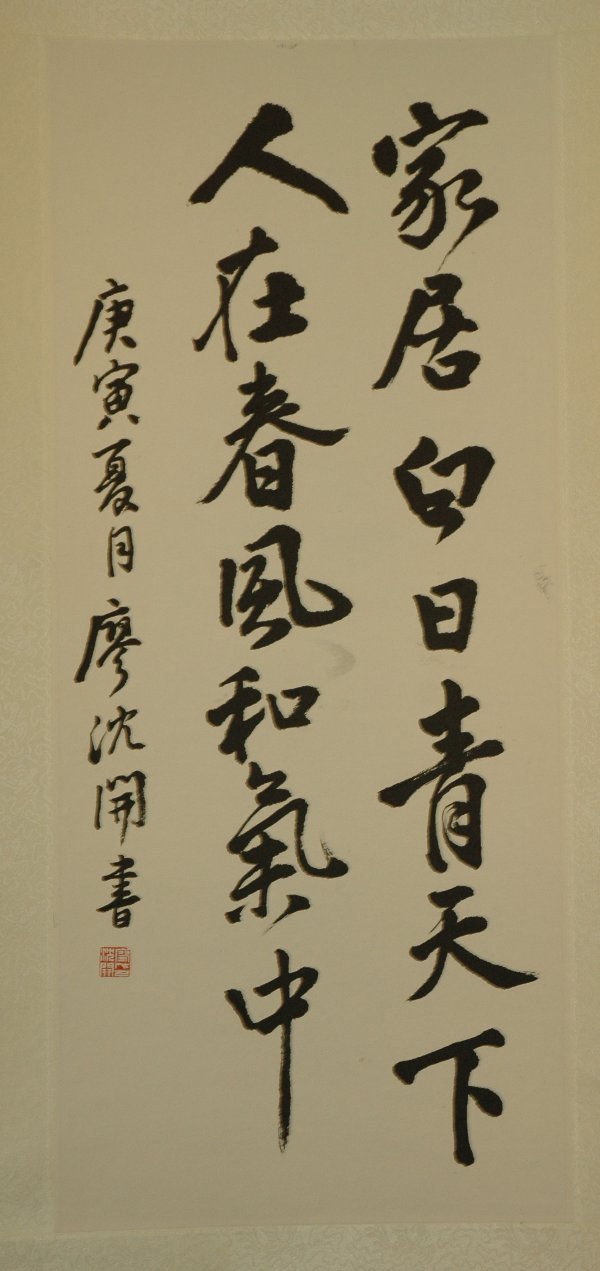 家居白日青天下
人在春風和氣中
庚寅夏月廖沈開書